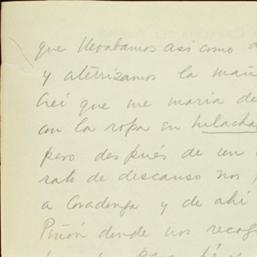 que llevabamos así como
y aterrizamos la mañ
Creí que me moria de
con la ropa en hilacha
pero después de un
rato de descanso nos
a Covadonga y de ahí
Piñón donde nos recog